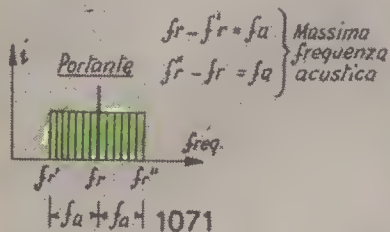 fr - fr' = fa
fr" - fr = fa
Massima
frequenza
acustica
i
Portante
freq.
fr' fr fr"
fa fa
1071